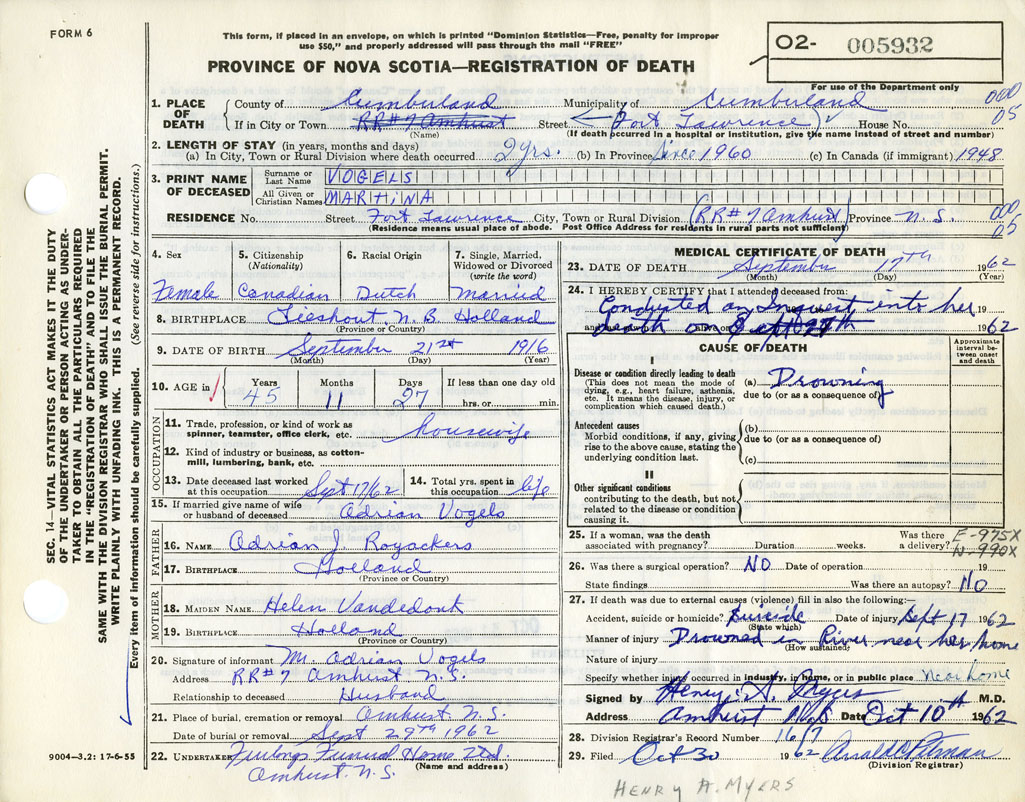 FORM 6
This form, if placed in an envelope, on which is printed "Dominion Statistics—Free, penalty for improper
use $50," and properly addressed will pass through the mail "FREE"
PROVINCE OF NOVA SCOTIA—REGISTRATION OF DEATH
O2- 005932
For use of the Department only
000
05
1. PLACE OF DEATH
County of Cumberland Municipality of Cumberland
If in City or Town RR#7 Amherst Street (Fort Lawrence) House No.
(Name) (If death occurred in a hospital or institution, give the name instead of street and number)
2. LENGTH OF STAY (in years, months and days)
(a) In City, Town or Rural Division where death occurred 2 yrs. (b) In Province since 1960 (c) In Canada (if immigrant) 1948
3. PRINT NAME OF DECEASED
Surname or Last Name VOGELS
All Given or Christian Names MARTINA
RESIDENCE No. Street Fort Lawrence City, Town or Rural Division (RR#7 Amherst) Province N.S.
(Residence means usual place of abode. Post Office Address for residents in rural parts not sufficient)
000
05
4. Sex Female
5. Citizenship (Nationality) Canadian
6. Racial Origin Dutch
7. Single, Married, Widowed or Divorced (write the word) Married
8. BIRTHPLACE N.B. Holland
(Province or Country)
9. DATE OF BIRTH September 21st 1916
(Month) (Day) (Year)
10. AGE in Years 45 Months 11 Days 27 If less than one day old hrs. or min.
OCCUPATION
11. Trade, profession, or kind of work as spinner, teamster, office clerk, etc. housewife
12. Kind of industry or business, as cotton-mill, lumbering, bank, etc.
13. Date deceased last worked at this occupation Sept 17/62
14. Total yrs. spent in this occupation life
15. If married give name of wife or husband of deceased Adrian Vogels
FATHER
16. NAME Adrian J. Royackers
17. BIRTHPLACE Holland
(Province or Country)
MOTHER
18. MAIDEN NAME Helen Vandedonk
19. BIRTHPLACE Holland
(Province or Country)
20. Signature of informant Mr. Adrian Vogels
Address RR#7 Amherst N.S.
Relationship to deceased Husband
21. Place of burial, cremation or removal Amherst N.S.
Date of burial or removal Sept 29th 1962
22. UNDERTAKER Furlongs Funeral Home Ltd.
(Name and address)
Amherst. N.S.
MEDICAL CERTIFICATE OF DEATH
23. DATE OF DEATH September 17th 1962
(Month) (Day) (Year)
24. I HEREBY CERTIFY that I attended deceased from:
Conducted an Inquest into her 19
death on Sept 27th 1962
CAUSE OF DEATH
Approximate interval between onset and death
I
Disease or condition directly leading to death
(This does not mean the mode of dying, e.g., heart failure, asthenia, etc. It means the disease, injury, or complication which caused death.)
(a) Drowning
due to (or as a consequence of)
Antecedent causes
Morbid conditions, if any, giving rise to the above cause, stating the underlying condition last.
(b)
due to (or as a consequence of)
(c)
II
Other significant conditions
contributing to the death, but not related to the disease or condition causing it.
25. If a woman, was the death associated with pregnancy? Duration weeks. Was there a delivery?
E-975X
N-990X
26. Was there a surgical operation? NO Date of operation 19
State findings Was there an autopsy? NO
27. If death was due to external causes (violence) fill in also the following:—
Accident, suicide or homicide? Suicide Date of injury Sept 17 1962
(State which)
Manner of injury Drowned in River near her home
(How sustained)
Nature of injury
Specify whether injury occurred in industry, in home, or in public place Near home
Signed by Henry A. Myers M.D.
Address Amherst N.S Date Oct 10th 1962
28. Division Registrar's Record Number 167
29. Filed Oct 30 1962
(Division Registrar)
HENRY A. MYERS
SEC. 14—VITAL STATISTICS ACT MAKES IT THE DUTY
OF THE UNDERTAKER OR PERSON ACTING AS UNDER-
TAKER TO OBTAIN ALL THE PARTICULARS REQUIRED
IN THE "REGISTRATION OF DEATH" AND TO FILE THE
SAME WITH THE DIVISION REGISTRAR WHO SHALL ISSUE THE BURIAL PERMIT.
WRITE PLAINLY WITH UNFADING INK. THIS IS A PERMANENT RECORD.
Every item of information should be carefully supplied. (See reverse side for instructions.)
9004—3.2: 17-6-55